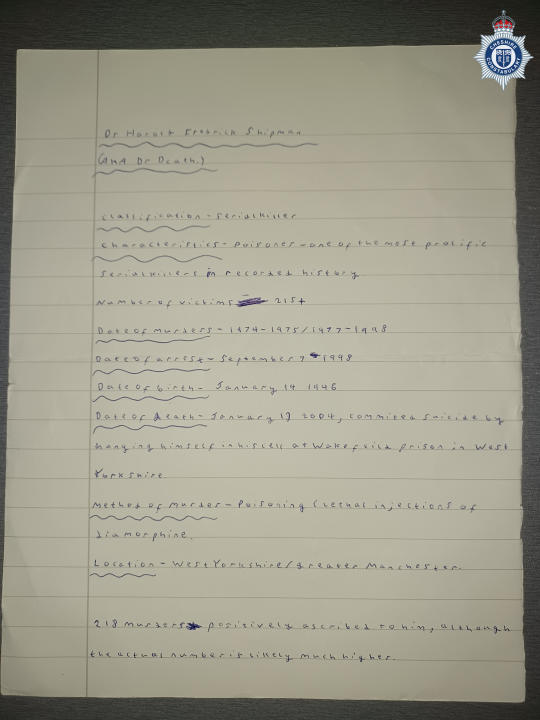 CHESHIRE
CONSTABULARY
Dr Harold Fredrick Shipman
(AKA Dr Death.)
Classification - Serial killer
Characteristics - Poisoner - one of the most prolific
Serial killers in recorded history
Number of victims 215+
Date of murders - 1974-1975/1977-1998
Date of arrest - September 7 1998
Date of birth - January 14 1946
Date of death - January 13 2004, commited suicide by
hanging himself in his cell at Wakefeild prison in West
Yorkshire
Method of murder - Poisoning (Lethal injections of
diamorphine.
Location - West Yorkshire/greater Manchester.
218 murders positively ascribed to him, although
the actual number is likely much higher.